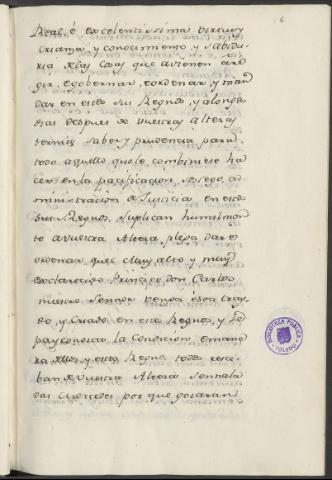 6
Real, é excelentissima Virtud, y
Crianza, y conocimiento y Sabidu-
ria de las Cosas que avienen á re-
gir, é gobernar, é ordenar, y man
dar en estos Sus Regnos, y alongue
dias despues de Vuestra Alteza
terniés Saber y prudencia para
todo aquello que le combiniere ha
cer en la pacificacion, sosiego, ad
ministracion de Justicia en estos
Sus Regnos, Suplican humilmen
te a Vuestra Alteza, plega dar é
ordenar que el muy alto y muy
esclarecido Principe Don Carlos
nuestro Sennor venga é sea
y Criado en estos Regnos, y
la Condicion é mane
ra dellos, y estos Regnos todos reci-
ban de Vuestra Alteza Sennala
das Mercedes por que gozarán
BIBLIOTECA PUBLICA
TOLEDO